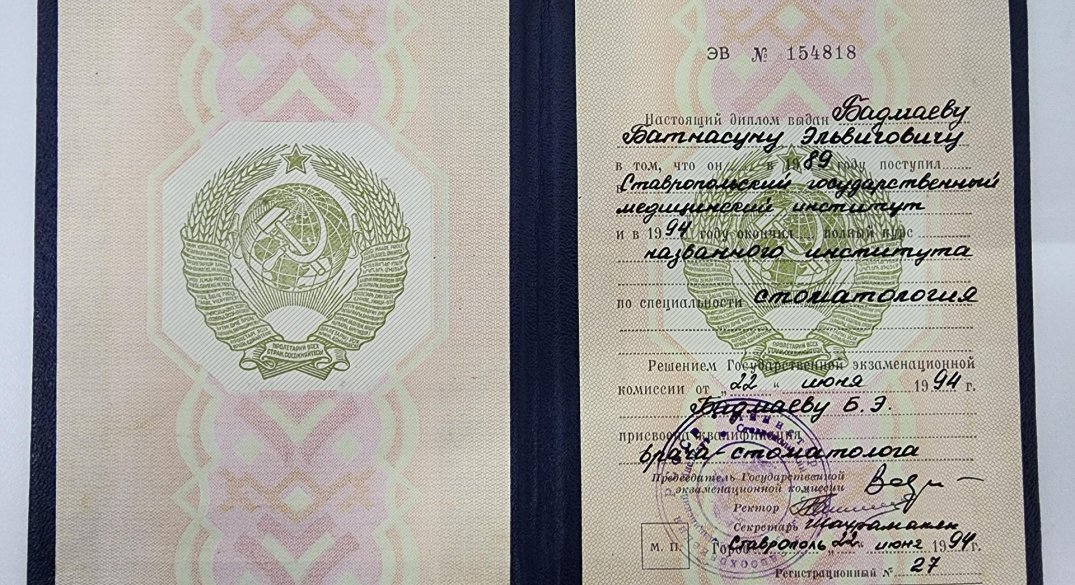 ПРОЛЕТАРИИ ВСЕХ
СТРАН, СОЕДИНЯЙТЕСЬ!
ЭВ № 154818
Настоящий диплом выдан Бадмаеву
Батнасуну Эльвиговичу
в том, что он в 1989 году поступил
в Ставропольский государственный
медицинский институт
и в 1994 году окончил полный курс
названного института
по специальности стоматология
Решением Государственной экзаменационной
комиссии от „22“ июня 1994 г.
Бадмаеву Б. Э.
присвоена квалификация
врача-стоматолога
Председатель Государственной
экзаменационной комиссии
Ректор
Секретарь
М. П. Город Ставрополь „22“ июня 1994 г.
Регистрационный № 27